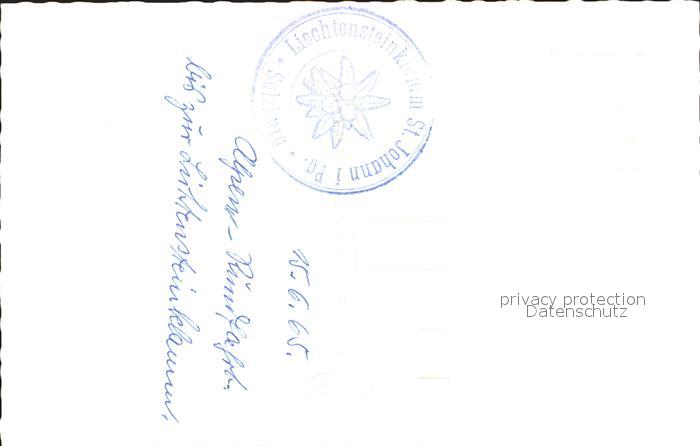 Liechtensteinklamm St. Johann i Pg.
15.6.65.
Alpen-Rundfahrt.
bis zur Lichtensteinklamm.
privacy protection
Datenschutz